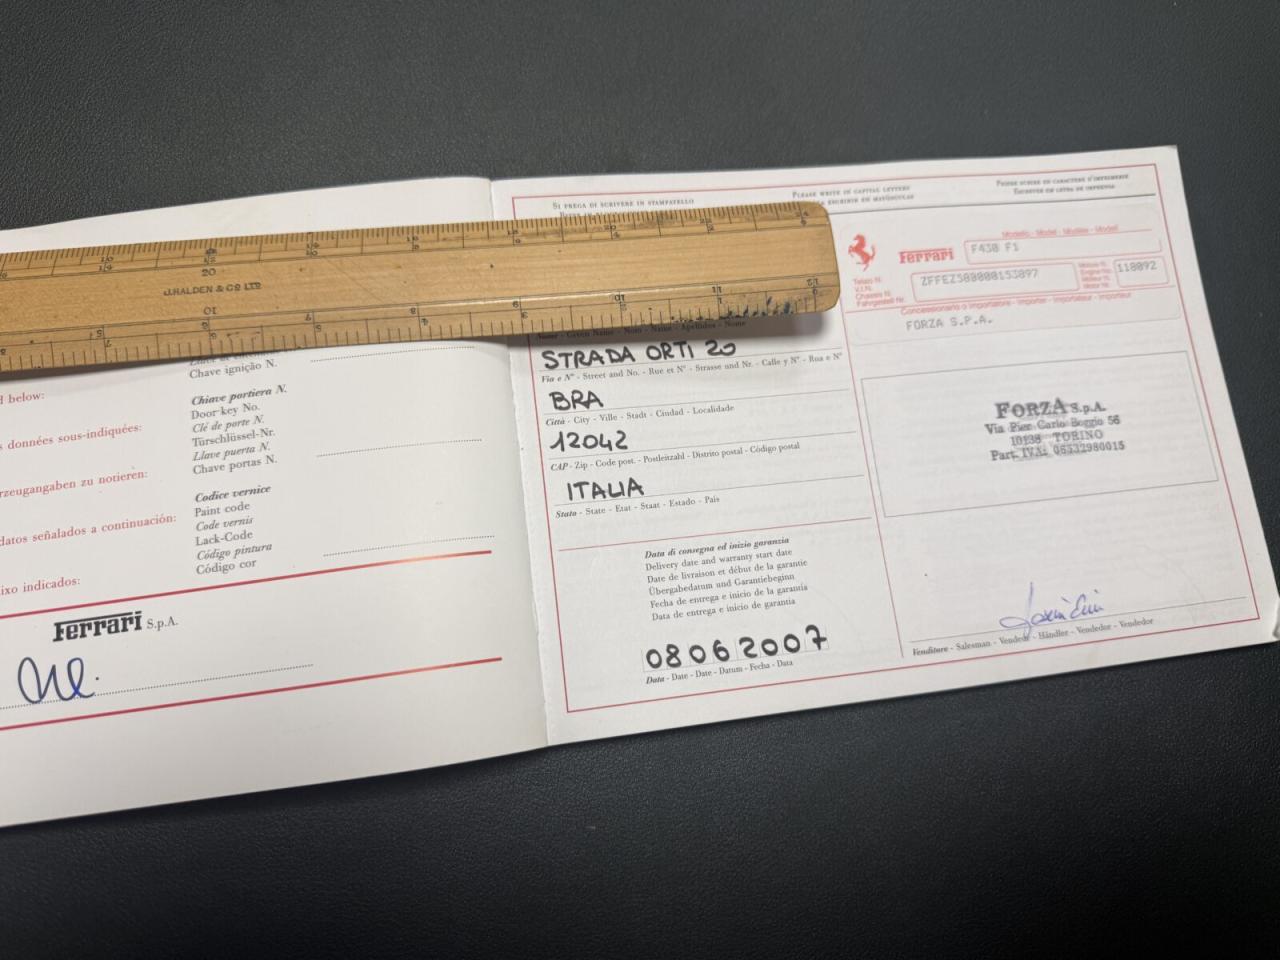 Chave ignição N.
Chiave portiera N.
Door key No.
Clé de porte N.
Türschlüssel-Nr.
Llave puerta N.
Chave portas N.
Codice vernice
Paint code
Code vernis
Lack-Code
Código pintura
Código cor
d below:
s données sous-indiquées:
rzeugangaben zu notieren:
datos señalados a continuación:
ixo indicados:
Ferrari S.p.A.
J.HALDEN & CO LTD
SI PREGA DI SCRIVERE IN STAMPATELLO
PLEASE WRITE IN CAPITAL LETTERS
Nome - Given Name - Nom - Name - Apellidos - Nome
STRADA ORTI 20
Via e N° - Street and No. - Rue et N° - Strasse und Nr. - Calle y N° - Rua e N°
BRA
Città - City - Ville - Stadt - Ciudad - Localidade
12042
CAP - Zip - Code post. - Postleitzahl - Distrito postal - Código postal
ITALIA
Stato - State - Etat - Staat - Estado - País
Data di consegna ed inizio garanzia
Delivery date and warranty start date
Date de livraison et début de la garantie
Übergabedatum und Garantiebeginn
Fecha de entrega e inicio de la garantía
Data de entrega e inicio de garantia
08062007
Data - Date - Date - Datum - Fecha - Data
Modello - Model - Modèle - Modell
Ferrari F430 F1
Telaio N.
V.I.N.
Chassis N.
Fahrgestell Nr.
ZFFEZ58B000153097
118092
Concessionario o Importatore - Importer - Importateur - Importeur
FORZA S.P.A.
FORZA S.p.A.
Via Pier Carlo Boggio 56
10138 TORINO
Part. IVA: 08532980015
Venditore - Salesman - Vendeur - Händler - Vendedor - Vendedor